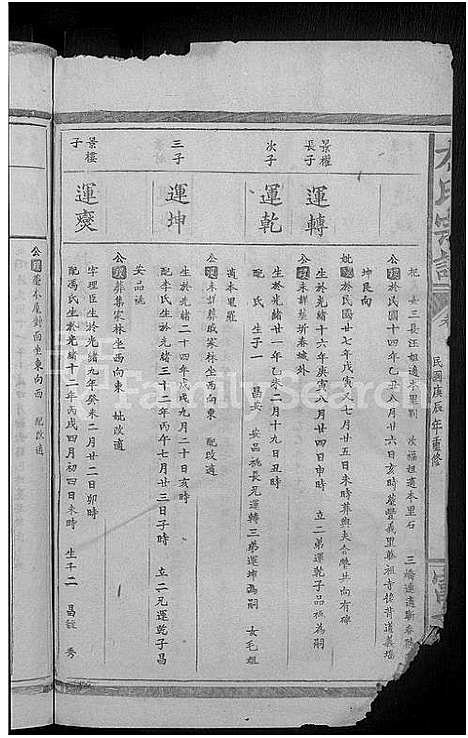 氏宗譜
民國庚辰年重修
祀 女三長汪姐適本里劉 次福姐適本里石 三
公歿於民國十四年乙丑八月廿六日亥時葬豐義里
坤艮向
妣歿於民國廿七年戊寅又七月廿五日未時葬與夫合塋共向有碑
景權長子
運轉
生於光緒十六年庚寅八月廿四日申時 立二弟運乾子品祧為嗣
公歿未詳葬蘄春城外
次子
運乾
生於光緒廿一年乙未二月十九日丑時
配 氏 生子一 昌安 安品祧長兄運轉三弟運坤為嗣 女毛姐
適本里羅
公歿未詳葬戚家林坐西向東 配改適
三子
運坤
生於光緒二十四年戊戌九月二十日亥時
配李氏生於光緒三十二年丙午七月廿三日子時 立二兄運乾子昌
安品祧
公歿葬集家林坐西向東 妣改適
景樓子
運爕
字理臣生於光緒九年癸未二月廿二日卯時
配馮氏生於光緒十二年丙戌四月初四日未時 生子二 昌 秀
對面坐東向西 配改適
FamilySearch